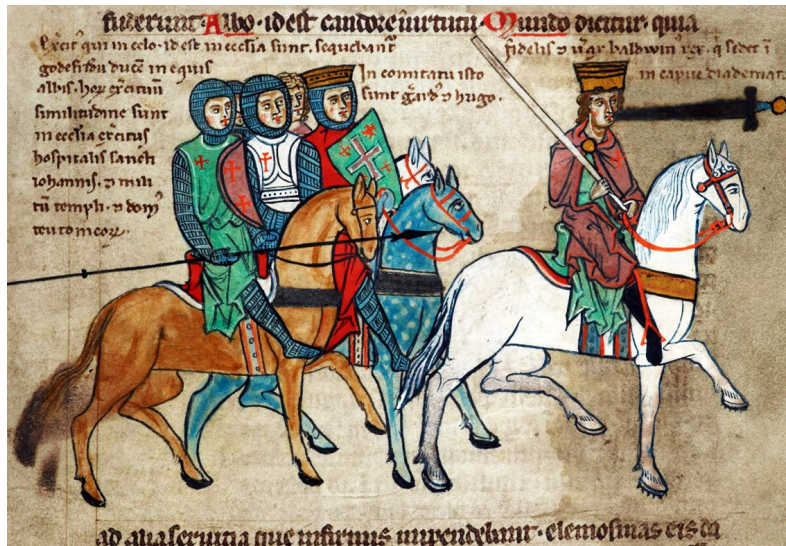 fuderunt. Albo. id est candore īuirtutū. Mundo dicitur. quia
Exercit' qui in celo. id est in ecclia sunt. sequebant̄
godefridū ducē in equis
albis. hoꝝ exercitum
similitudine sunt
in ecclia exercitus
hospitalis sancti
iohannis. ⁊ mili
tū templi. ⁊ dom'
teutonicoꝝ.
In comitatu isto
sunt ⁊ hugo.
fidelis ⁊ baldwin' rex. q̄ sedet ī
in capite diademata
ad alia seruitia que infirmis impendebant. elemosinas eis